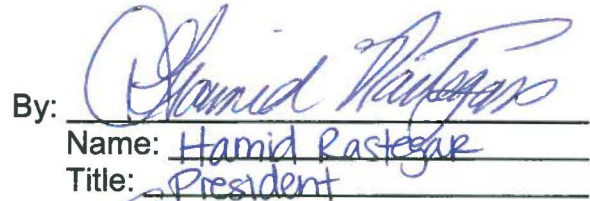 By: Hamid Rastegar
Name: Hamid Rastegar
Title: President